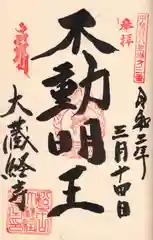 奉拝
令和二年
三月十四日
不動明王
大蔵経寺